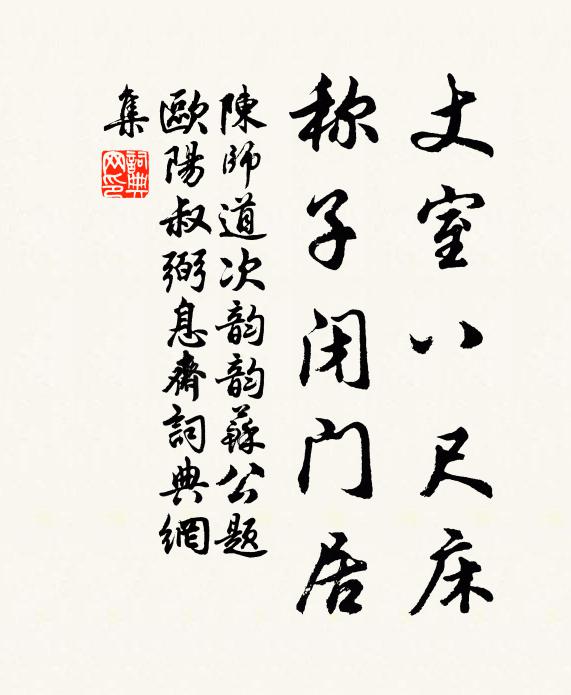 丈室八尺床
称子闭门居
陳師道次韵韵蘇公题
歐陽叔弼息齋詞典網
集
詞典网印